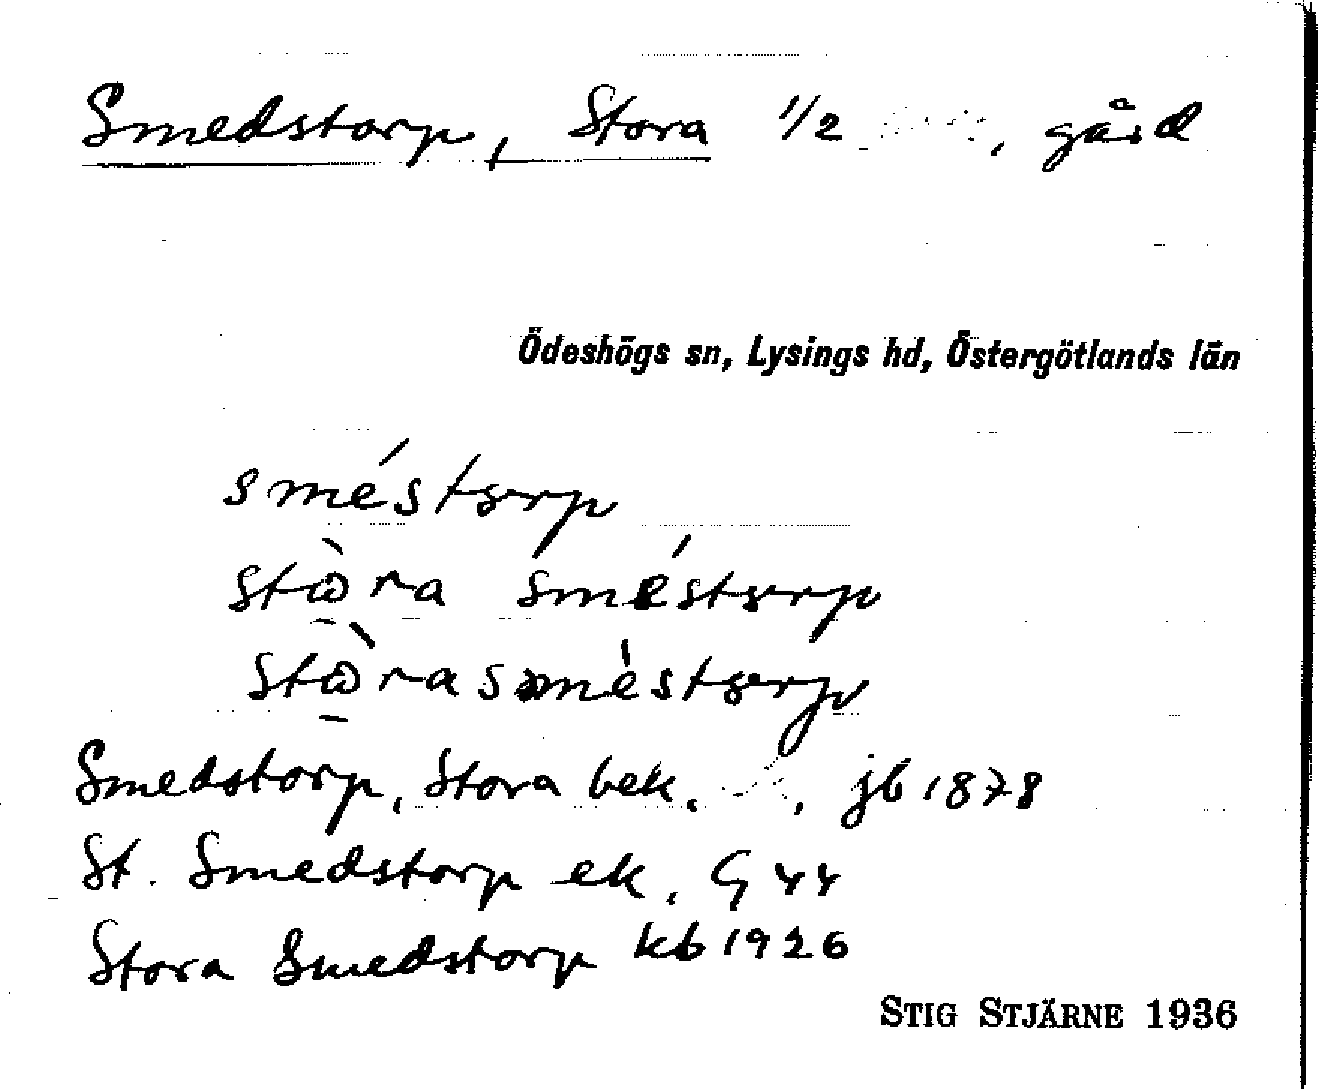 Smedstorp, Stora 1/2 , gård
Ödeshögs sn, Lysings hd, Östergötlands län
sméstɵrp
stὼ̱ra sméstɵrp
stὼ̱rasméstɵrp
Smedstorp, Stora bek. , jb 1878
St. Smedstorp ek, G 44
Stora Smedstorp kb 1926
STIG STJÄRNE 1936